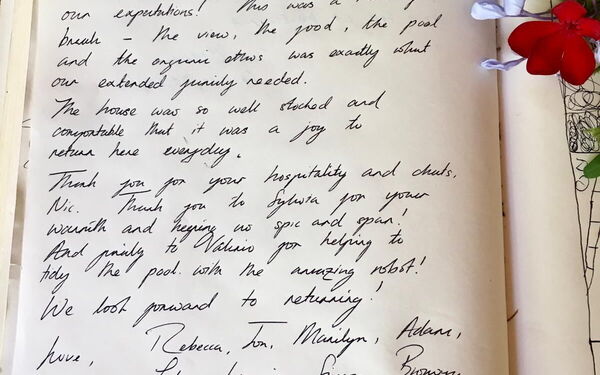 our expectations! This was a
break – the view, the food, the pool
and the organic ethos was exactly what
our extended family needed.
The house was so well stocked and
comfortable that it was a joy to
return here everyday.
Thank you for your hospitality and chats,
Nic. Thank you to Sylwia for your
warmth and keeping us spic and span!
And finally to Valerio for helping to
tidy the pool with the amazing robot!
We look forward to returning!
Love, Rebecca, Jon, Marilyn, Adam,